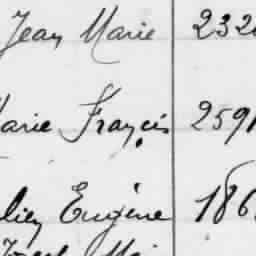 Jean Marie 232
Marie François 259
Eugène 186